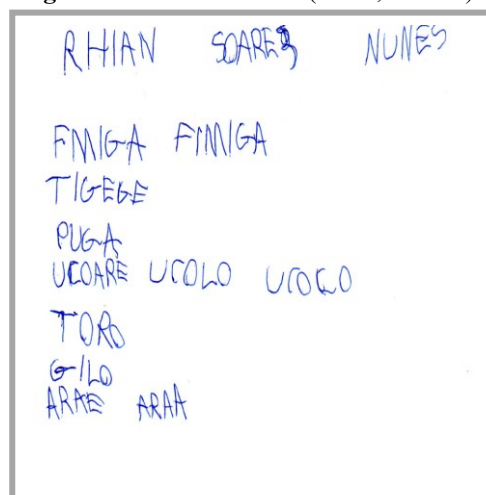 RHIAN SOARES NUNES
FMIGA FIMIGA
TIGEGE
PUGA
UCOARE UCOLO UCOLO
TORO
GILO
ARAE ARAA